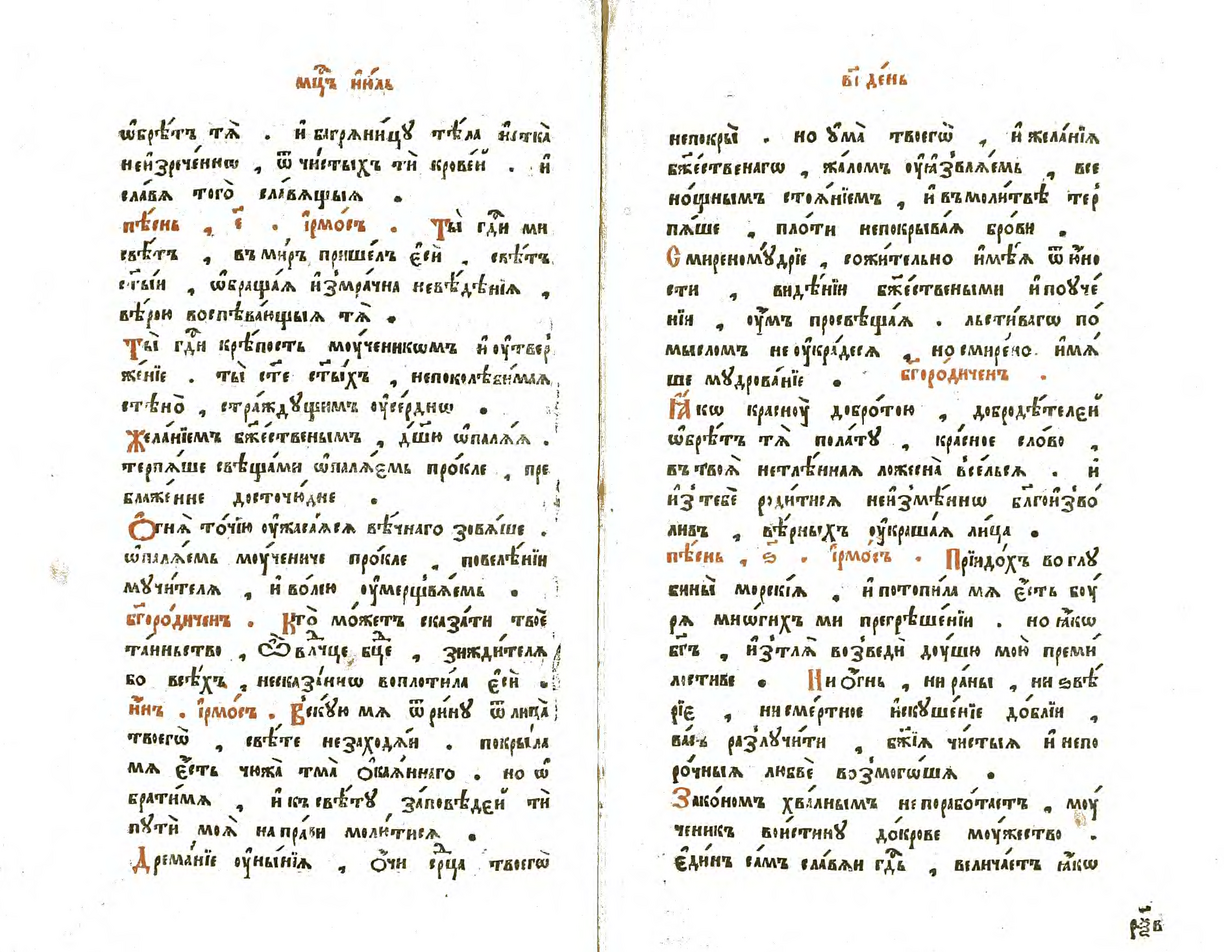 мцⷭ҇ъ і҆ю́ль
ѡ҆брѣ́тъ тѧ̀ . и҆ багрѧни́цꙋ тѣ́ла и҆стка̀
неи҆зрече́ннѡ , ѿ чи́стыхъ тѝ крове́й . и҆
сла́вѧ того̀ сла́вѧщыѧ .
пѣ́снь , є҃ . і҆рмо́съ . Ты̀ гдⷭ҇и ми
свѣ́тъ , въ ми́ръ прише́лъ є҆сѝ , свѣ́тъ
ст҃ы́и , ѡ҆браща́ѧ и҆з̾мра́чна невѣ́дѣнїѧ ,
вѣ́рою воспѣва́ющыѧ тѧ̀ .
Ты̀ гдⷭ҇и крѣ́пость мꙋ́ченикѡмъ и҆ ᲂу҆тве́р
же́нїе . ты̀ ст҃е ст҃ы́хъ , непоколѣби́маѧ
стѣно̀ , стра́ждꙋщимъ ᲂу҆се́рднѡ .
Жела́нїемъ бж҃е́ственымъ , дш҃ю ѡ҆палѧ́ѧ .
терпѧ́ше свѣща́ми ѡ҆палѧ́емь про́кле , пре
блаже́нне досточю́дне .
Ѻ҆гнѧ̀ то́чїю ᲂу҆жаса́ѧсѧ вѣ́чнаго зовѧ́ше .
ѡ҆палѧ́емь мꙋ́чениче про́кле , повелѣ́нїи
мꙋчи́телѧ , и҆ во́лею ᲂу҆мерщвѧ́емь .
бг҃оро́диченъ . Кто̀ мо́жетъ сказа́ти твоѐ
та́иньство , Ѽ влⷣчце бцⷣе , зижди́телѧ
бо всѣ́хъ , несказа́ннѡ воплоти́ла є҆сѝ .
и҆́нъ . і҆рмо́съ . Вску́ю мѧ ѿри́нꙋ ѿ лица̀
твоегѡ̀ , свѣ́те незаходѧ́и . покры́ла
мѧ є҆́сть чюжа̀ тма̀ ѻ҆каѧ́ннаго . но ѡ҆
брати́мѧ , и҆ къ свѣ́тꙋ за́повѣдей тѝ
пꙋтѝ моѧ̀ напра́ви моли́тисѧ .
Дрема́нїе ᲂу҆ны́нїѧ , ѻ҆́чи срⷣца твоегѡ̀
в҃і де́нь
непокры̀ . но ᲂу҆ма̀ твоегѡ̀ , и҆ жела́нїѧ
бж҃е́ственагѡ , жа́ломъ ᲂу҆ѧ҆звлѧ́емь , все
но́щнымъ стоѧ́нїемъ , и҆ въ моли́твѣ тер
пѧ́ше , пло́ти непокрыва́ѧ бро́ви .
Смиреномꙋ́дрїе , сожи́тельно и҆мѣ́ѧ ѿ ю҆́но
сти , видѣ́нїи бж҃е́ствеными и҆ поуче́
нїи , ᲂу҆́мъ просвѣща́ѧ . льсти́вагѡ по́
мысломъ не ᲂу҆кра́десѧ , но смире́но имѧ́
ше мꙋдрова́нїе . бг҃оро́диченъ .
Ꙗ҆́кѡ красно́ю добро́тою , добродѣ́телей
ѡ҆брѣ́тъ тѧ̀ пола́тꙋ , кра́сное сло́во ,
въ твоѧ̀ нетлѣ́ннаѧ ложесна̀ всели́всѧ . и҆
и҆з̾ тебѐ роди́тисѧ неи҆змѣ́ннѡ бл҃гои҆зво́
ливъ , вѣ́рныхъ ᲂу҆краша́ѧ ли́ца .
пѣ́снь , ѕ҃ . і҆рмо́съ . Прїидо́хъ во глꙋ
бины̀ морскі́ѧ , и҆ потопи́ла мѧ є҆́сть бꙋ́
рѧ мно́гихъ ми прегрѣше́нїи . но ꙗ҆́кѡ
бг҃ъ , и҆з̾ тлѧ̀ возведѝ дꙋ́шю мою̀ преми́
лостиве . Ни ѻ҆́гнь , ни ра́ны , ни ѕвѣ́
рїе , ни сме́ртное и҆скуше́нїе до́блїи ,
ва́съ разлꙋчи́ти , бж҃їѧ чи́стыѧ и҆ непо
ро́чныѧ любвѐ возмого́шѧ .
Зако́номъ хва́лнымъ непорабо́таетъ , мꙋ́
ченикъ вои́стинꙋ до́крове мꙋ́жество .
Є҆ди́нъ са́мъ сла́вѧи гдⷭ҇ь , велича́етъ ꙗ҆́кѡ